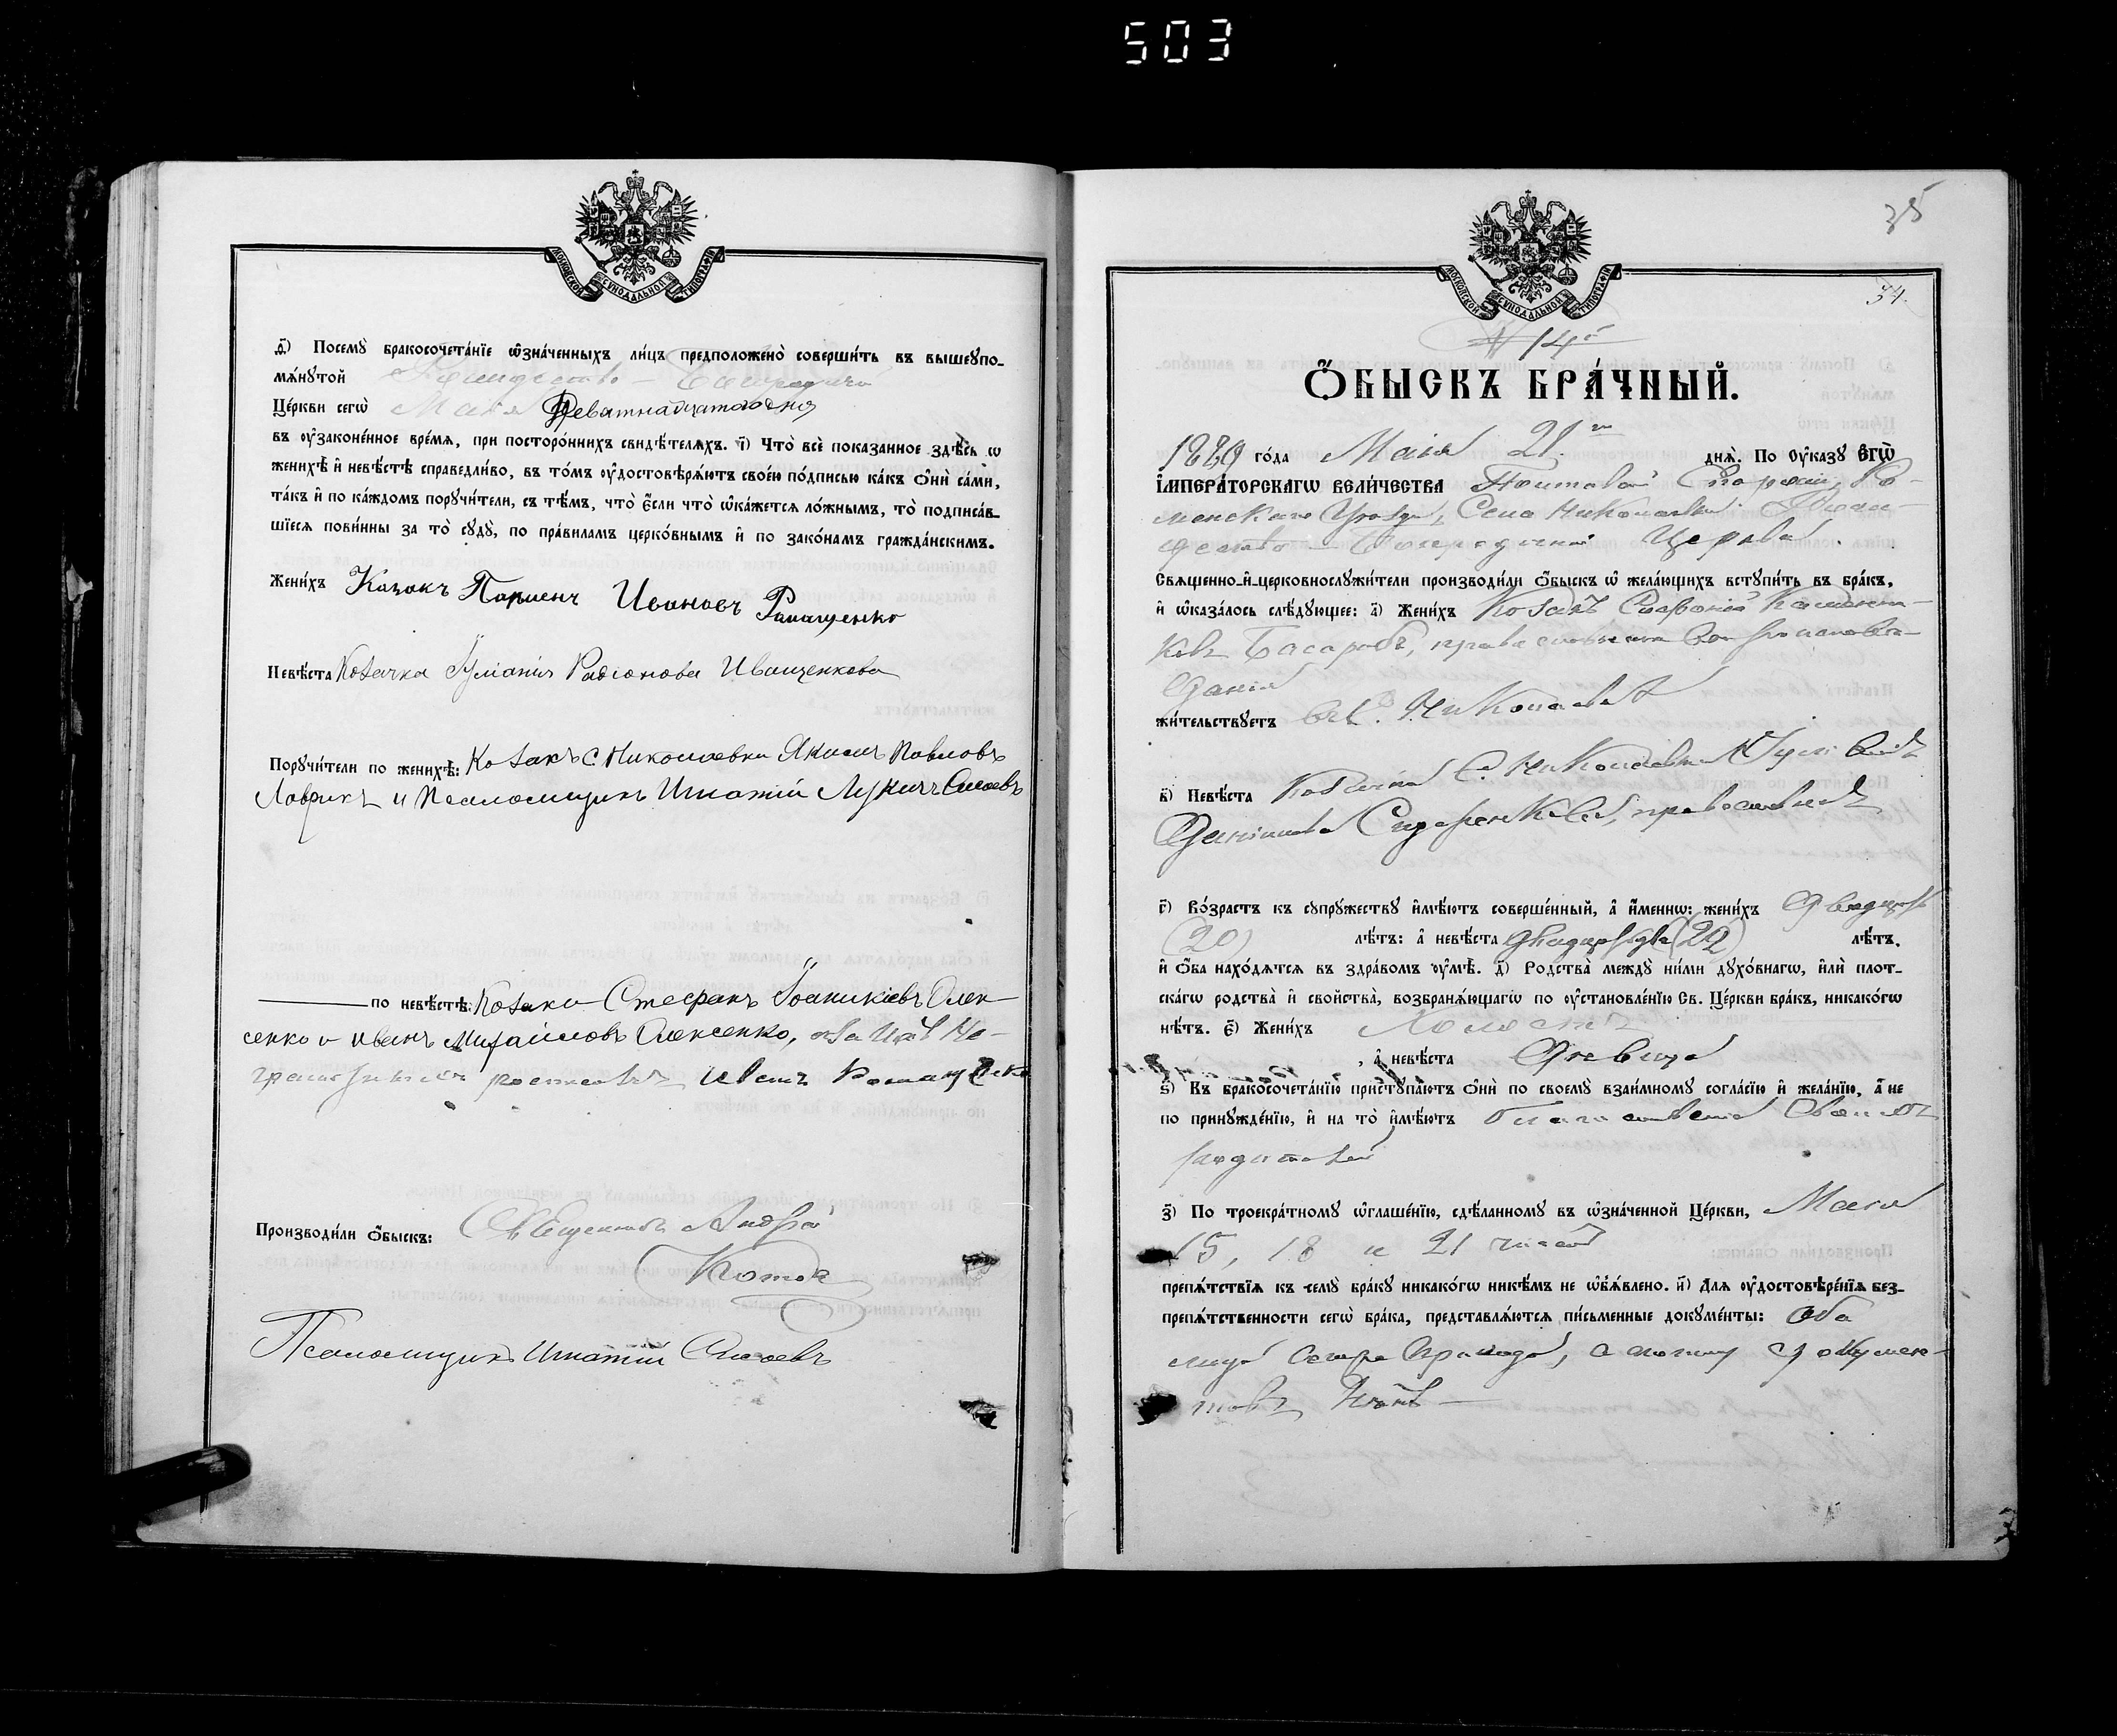 503
МОСКОВСКОЙ СѴНОДАЛЬНОЙ ТИПОГРАФІИ
Ѳ҃) Посемꙋ̀ бракосочета́нїе ѡ҆зна́ченныхъ ли́цъ предположено̀ соверши́ть въ вышеꙋпо-
мѧ́нꙋтой Рождество - Богородичной
Це́ркви сегѡ̀ Маія Девятнадцатого дня
въ ᲂу҆зако́ненное вре́мѧ, при посторо́ннихъ свидѣ́телѧхъ. І҃) Что̀ всѐ показанное здѣ́сь ѡ
женихѣ̀ и҆ невѣ́стѣ справедли́во, въ то́мъ ᲂу҆достовѣрѧ́ютъ свое́ю по́дписью ка́къ ѻ҆нѝ са́ми,
та́къ и҆ по ка́ждомъ порꙋчи́тели, съ тѣ́мъ, что̀ є҆́сли что̀ ѡ҆ка́жетсѧ ло́жнымъ, то̀ подписа́в-
шїесѧ пови́нны за то̀ сꙋдꙋ̀, по пра́виламъ церко́внымъ и҆ по зако́намъ гражда́нскимъ.
Жени́хъ Козакъ Парменъ Ивановъ Ромащенко
Невѣ́ста Козачка Іуліанія Радіонова Иващенкова
Порꙋчи́тели по женихѣ̀: Козакъ с. Николаевки Якимъ Павловъ
Лаврикъ и Псаломщикъ Игнатій Лукичъ
по невѣ́стѣ: Козаки Стефанъ Іоаникіевъ Олек-
сенко и Иванъ Михайловъ Олексенко, а за ихъ не-
грамотныхъ росписался Иванъ Ромащенко
Производи́ли ѻ҆́быскъ: Священникъ Андрей
Псаломщикъ Игнатій
35
МОСКОВСКОЙ СѴНОДАЛЬНОЙ ТИПОГРАФІИ
34.
№ 14й
Ѻ҆́БЫСКЪ БРА́ЧНЫЙ.
1889 го́да Маія 21го днѧ̀. По ᲂу҆ка́зꙋ Є҆ГѠ̀
І҆МПЕРА́ТОРСКАГѠ ВЕЛИ́ЧЕСТВА Полтавской Епархіи, Ро-
менскаго Уѣзда, Села Николаевки Рожде-
ство - Богородичной Церкви.
Свѧщенно-и҆-церковнослꙋжи́тели производи́ли ѻ҆́быскъ ѡ҆ жела́ющихъ встꙋпи́ть въ бра́къ,
и҆ ѡ҆каза́лось слѣ́дꙋющее: а҃) Жени́хъ Козакъ
Басарабъ, православнаго вѣроисповѣ-
данія
жи́тельствꙋетъ въ с. Николаевкѣ
в҃) Невѣ́ста Козачка с. Николаевки
Сидоренкова, православнаго
г҃) Во́зрастъ къ сꙋпрꙋ́жествꙋ и҆мѣ́ютъ соверше́нный, а҆ и҆́меннѡ: жени́хъ Двадцать
(20) лѣ́тъ: а҆ невѣ́ста двадцать два (22) лѣ́тъ.
и҆ ѻ҆́ба нахо́дѧтсѧ въ здра́вомъ ᲂу҆мѣ̀. д҃) Родства̀ междꙋ̀ ни́ми дꙋхо́внагѡ, и҆лѝ плот-
ска́гѡ родства̀ и҆ сво́йства, возбранѧ́ющагѡ по ᲂу҆становле́нїю Св. Це́ркви бра́къ, никако́гѡ
нѣ́тъ. є҃) Жени́хъ Холостъ
, а҆ невѣ́ста Дѣвица
ѕ҃) Къ бракосочета́нїю пристꙋпа́ютъ ѻ҆нѝ по своемꙋ̀ взаи́мномꙋ согла́сїю и҆ жела́нїю, а҆ не
по принꙋжде́нїю, и҆ на то̀ и҆мѣ́ютъ благословеніе своихъ
родителей
з҃) По троекра́тномꙋ ѡ҆глаше́нїю, сдѣ́ланномꙋ въ ѡ҆зна́ченной Це́ркви, Маія
15, 18 и 21 чиселъ
препѧ́тствїѧ къ семꙋ̀ бра́кꙋ никако́гѡ никѣ́мъ не ѡ҆б̾ѧ́влено. и҃) Длѧ ᲂу҆достовѣре́нїѧ без-
препѧ́тственности сегѡ̀ бра́ка, представлѧ́ютсѧ пи́сьменные докꙋме́нты: Оба
лица сего прихода, а потому докумен-
товъ нѣтъ